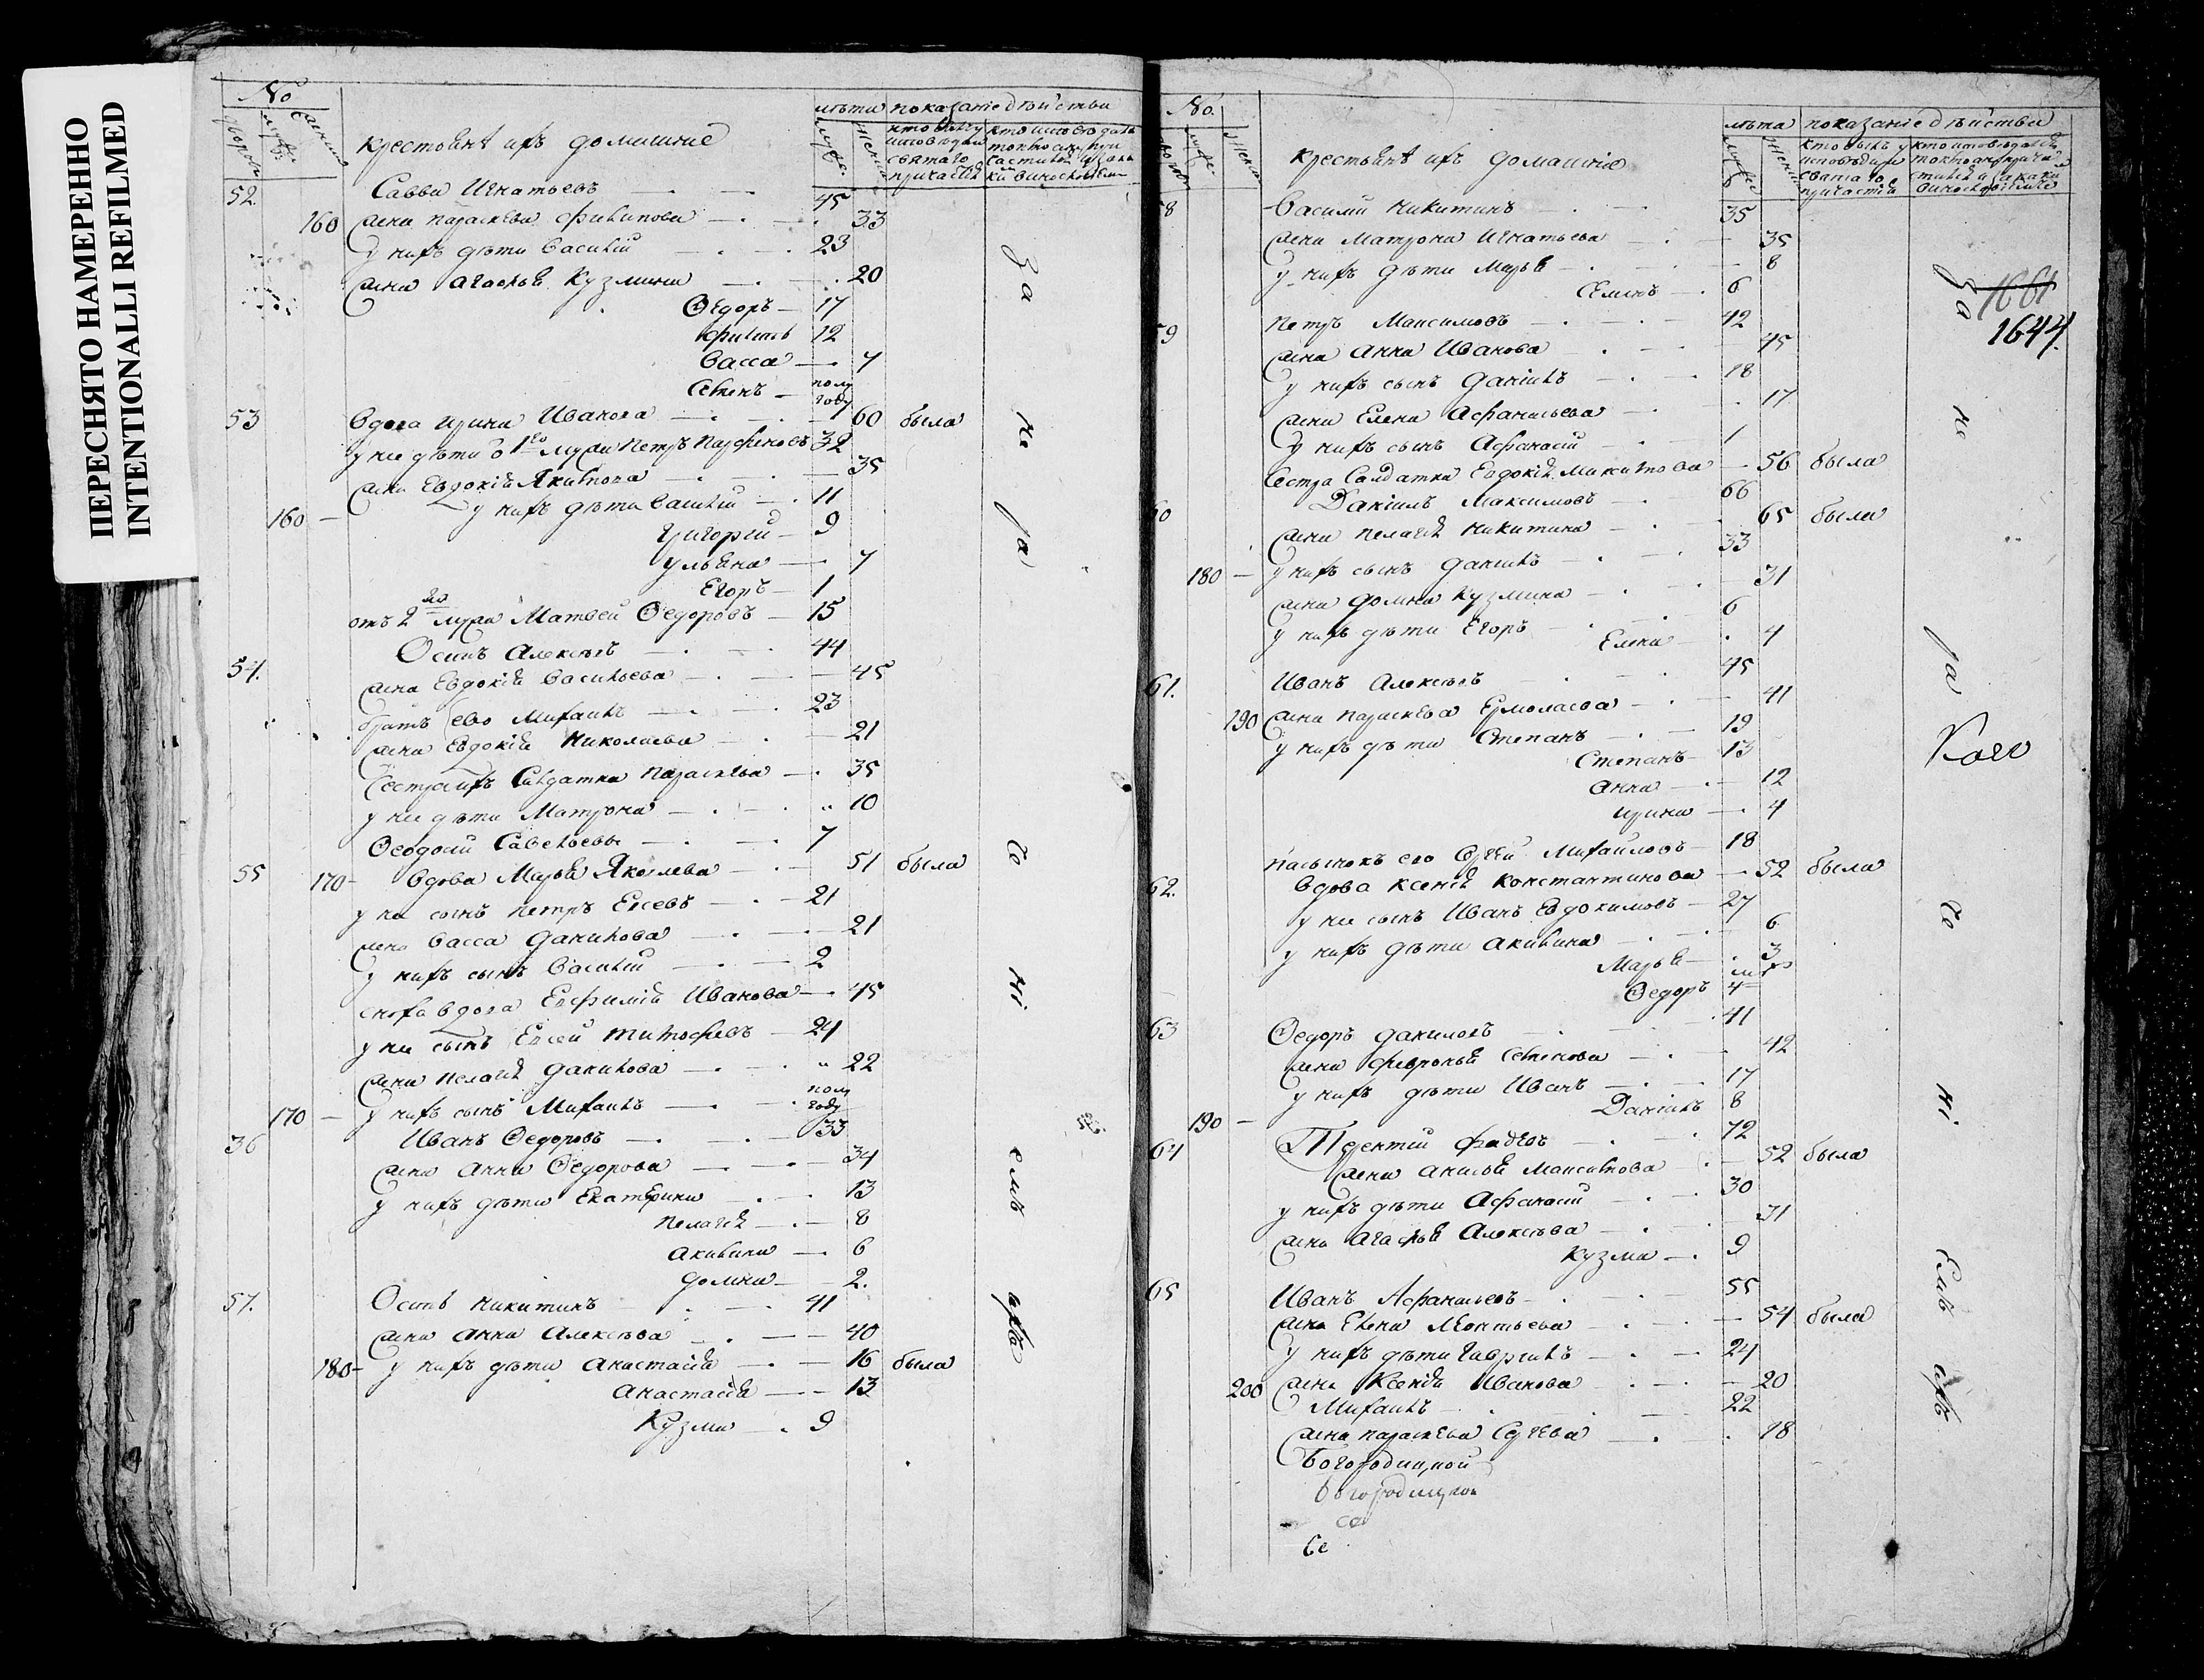 ПЕРЕСНЯТО НАМЕРЕННО
INTENTIONALLI REFILMED
No
дворовъ
лѣта показаніе дѣйства
крестьянѣ ихъ домашніе
52 Савва Игнатьевъ 45
160 жена параскева филипова 33
у нихъ дѣти василій 23
жена агафья Кузмина 20
Ѳедоръ 17
филипъ 12
васса 7
семенъ полугоду
53 вдова ирина Иванова 60 была
у нее дѣти о 1го мужа петръ парфеновъ 32
жена Евдокія Якимова 35
160 у нихъ дѣти василій 11
григорій 9
ульяна 7
Егоръ 1
отъ 2го мужа Матвей Ѳедоровъ 15
54. Осипъ алексѣевъ 44
жена Евдокія васильева 45
братъ ево Михаилъ 23
жена Евдокія николаева 21
сестра ихъ салдатка параскева 35
у нее дѣти Матрона 10
Ѳеодосій Савельевъ 7
55 170 вдова Марья Яковлева 51 была
у не сынъ петръ Елсевъ 21
жена васса данилова 21
у нихъ сынъ василій 2
сноха вдова Евфимія Иванова 45
у нее сынъ 24
жена пелагея данилова 22
170 у нихъ сынъ Михаилъ полугоду
36 Иванъ Ѳедоровъ 33
жена анна Ѳедорова 34
у нихъ дѣти Екатерина 13
пелагея 8
акилина 6
домна 2.
57. Осипъ никитинъ 41
жена анна алексѣева 40
180 у нихъ дѣти анастасія 16 была
анастасія 13
Кузма 9
за
не
за
No.
лѣта показаніе дѣйства
крестьянѣ ихъ домашніе
1661
1644.
8 василій никитинъ 35
жена матрона игнатьева 35
у нихъ дѣти марья 8
семенъ 6
9 петръ максимовъ 42
жена анна Иванова 45
у нихъ сынъ даніилъ 18
жена Елена афанасьева 17
у нихъ сынъ афанасій 1
сестра салдатка Евдокія максимова 56 была
60 Даніилъ максимовъ 66
жена пелагея никитина 65 была
180 у нихъ сынъ даніилъ 33
жена домна кузмина 31
у нихъ дѣти Егоръ 6
Елена 4
61. Иванъ алексѣевъ 45
190 жена параскева Ермолаева 41
у нихъ дѣти Степанъ 19
Степанъ 13
анна 12
ирина 4
пасынокъ ево Сергей михаиловъ 18
62. вдова ксенія константинова 52 была
у нее сынъ Иванъ Евдокимовъ 27
у нихъ дѣти акилина 6
марья 3
Ѳедоръ 4
63 Ѳедоръ даниловъ 41
жена февронья семенова 42
у нихъ дѣти Иванъ 17
190 Даніилъ 8
64 Терентій фадѣевъ 72
жена анисья максимова 52 была
у нихъ дѣти афанасій 30
жена агафья алексѣева 31
кузма 9
65 Иванъ афанасьевъ 55
жена Елена леонтьева 54 была
у нихъ дѣти гавріилъ 24
200 жена ксенія Иванова 20
михаилъ 22
жена параскева сергеева 18
богородицкой
богородицкои
се
за
не
за